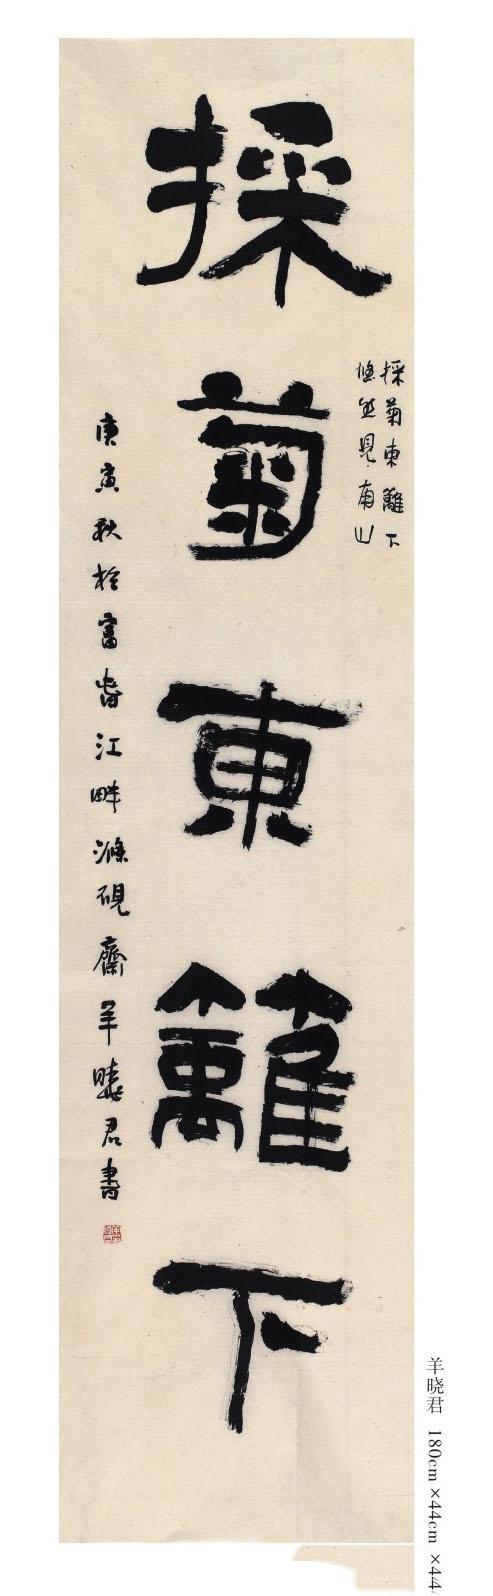 採菊東籬下
悠然見南山
採菊東籬下
庚寅秋於富春江畔滌硯齋羊曉君書
羊晓君 180cm×44cm ×44